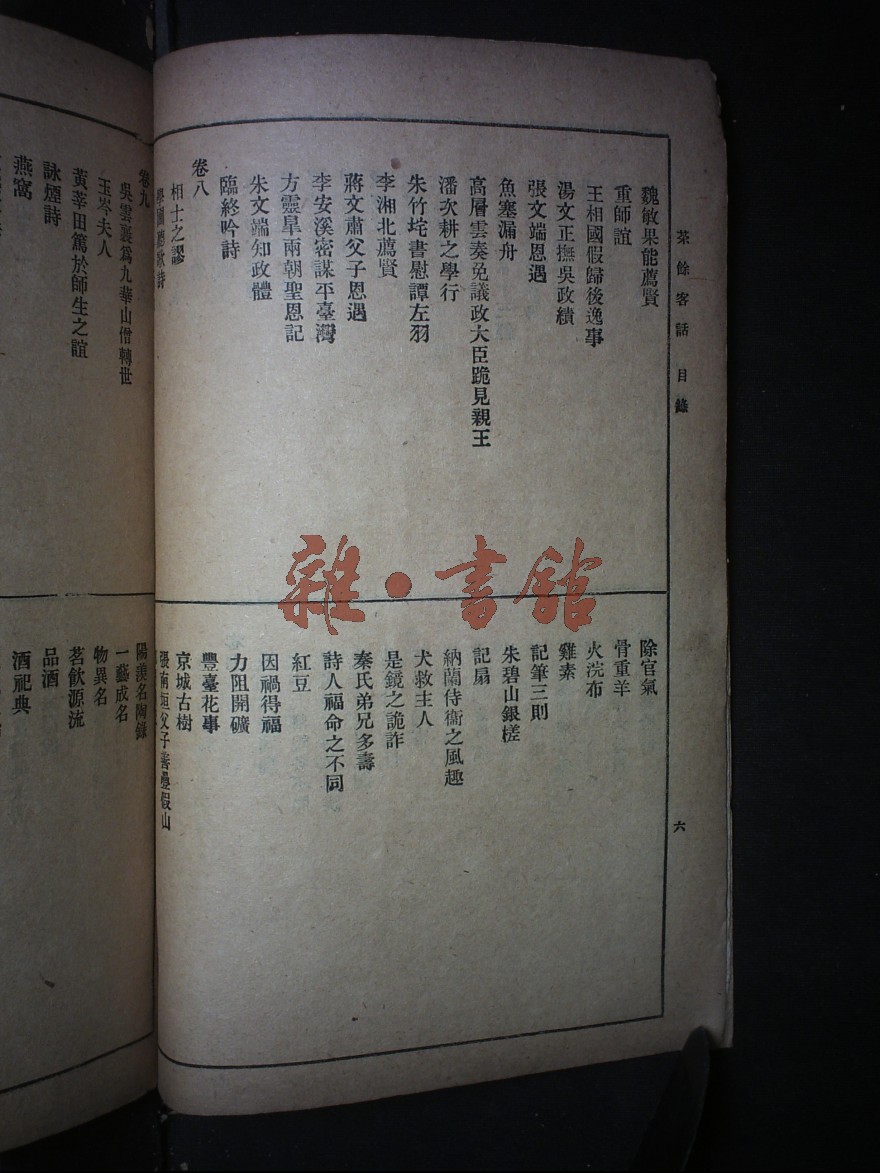 茶餘客話 目錄
六
魏敏果能薦賢
重師誼
王相國假歸後逸事
湯文正撫吳政績
張文端恩遇
魚塞漏舟
高層雲奏免議政大臣跪見親王
潘次耕之學行
朱竹垞書慰譚左羽
李湘北薦賢
蔣文肅父子恩遇
李安溪密謀平臺灣
方靈皋兩朝聖恩記
朱文端知政體
臨終吟詩
卷八
相士之謬
除官氣
骨重羊
火浣布
雞素
記筆三則
朱碧山銀槎
記扇
納蘭侍衞之風趣
犬救主人
是鏡之詭詐
秦氏弟兄多壽
詩人福命之不同
紅豆
因禍得福
力阻開礦
豐臺花事
京城古樹
張南垣父子善疊假山
卷九
吳雲襄爲九華山僧轉世
玉岑夫人
黃莘田篤於師生之誼
詠煙詩
燕窩
陽羨名陶錄
一藝成名
物異名
茗飲源流
品酒
酒祀典
雜·書館